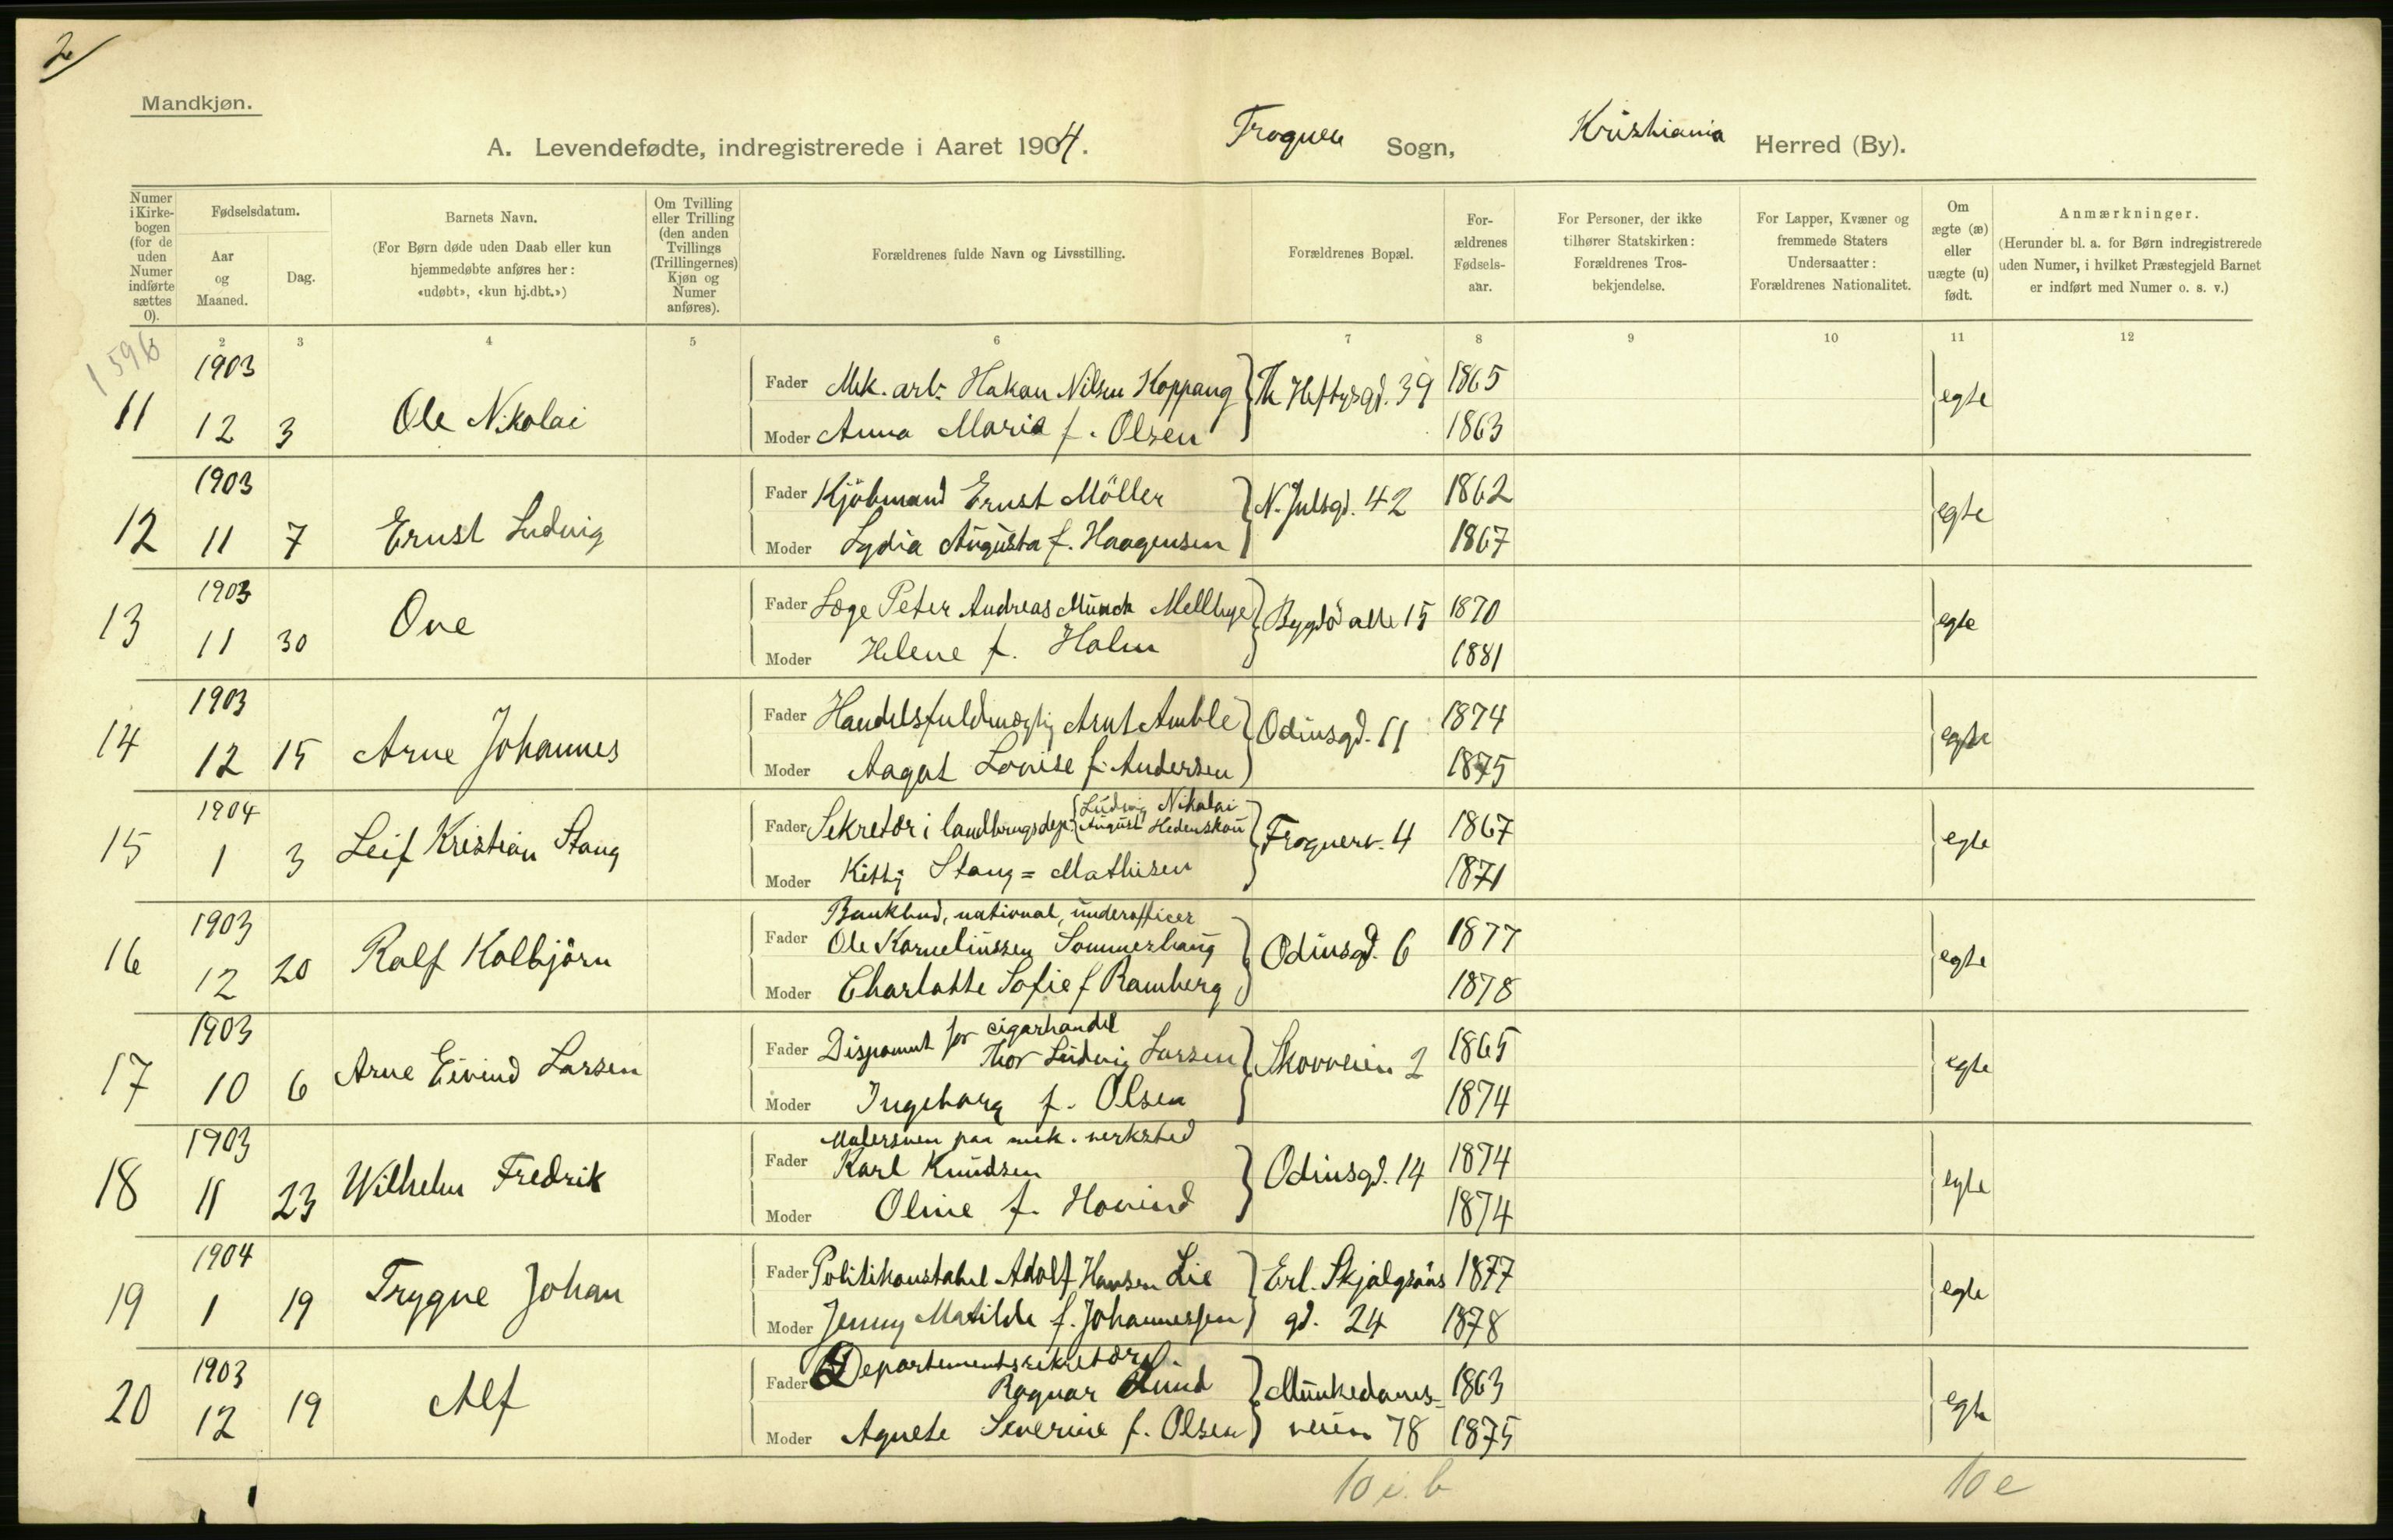 2
Mandkjøn.
A. Levendefødte, indregistrerede i Aaret 1904. Frogner Sogn, Kristiania Herred (By).
Numer i Kirke-bogen (for de uden Numer indførte sættes 0).
Fødselsdatum.
Aar og Maaned.
Dag.
Barnets Navn.
(For Børn døde uden Daab eller kun hjemmedøbte anføres her: «udøbt», «kun hj.dbt.»)
Om Tvilling eller Trilling (den anden Tvillings (Trillingernes) Kjøn og Numer anføres).
Forældrenes fulde Navn og Livsstilling.
Forældrenes Bopæl.
For-ældrenes Fødsels-aar.
For Personer, der ikke tilhører Statskirken: Forældrenes Tros-bekjendelse.
For Lapper, Kvæner og fremmede Staters Undersaatter: Forældrenes Nationalitet.
Om ægte (æ) eller uægte (u) født.
Anmærkninger.
(Herunder bl. a. for Børn indregistrerede uden Numer, i hvilket Præstegjeld Barnet er indført med Numer o. s. v.)
2 3 4 5 6 7 8 9 10 11 12
1596
11 1903 12 3 Ole Nikolai
Fader Mek. arb. Hakon Nilsen Koppang Th Heftysgd. 39 1865 egte
Moder Anna Maria f. Olsen 1863
12 1903 11 7 Ernst Ludvig
Fader Kjöbmand Ernst Möller N. Julsgd. 42 1862 egte
Moder Lydia Augusta f. Haagensen 1867
13 1903 11 30 Ove
Fader Læge Peter Andreas Munch Mellbye Bygdö alle 15 1870 egte
Moder Helene f. Holm 1881
14 1903 12 15 Arne Johannes
Fader Handelsfuldmægtig Arnt Amble Odinsgd. 11 1874 egte
Moder Aagot Lovise f. Andersen 1875
15 1904 1 3 Leif Kristian Stang
Fader Sekretær i landbrugsdep. Ludvig Nikolai August Hedenskou Frognerv. 4 1867 egte
Moder Kitty Stang = Mathisen 1871
16 1903 12 20 Rolf Kolbjörn
Bankbud, national, underofficer
Fader Ole Korneliussen Sommerhaug Odinsgd. 6 1877 egte
Moder Charlotte Sofie f Ramberg 1878
17 1903 10 6 Arne Eivind Larsen
Fader Disponent for cigarhandel Thor Ludvig Larsen Skovveien 2 1865 egte
Moder Ingeborg f. Olsen 1874
18 1903 11 23 Wilhelm Fredrik
Malersven paa mek. verksted
Fader Karl Knudsen Odinsgd. 14 1874 egte
Moder Oline f. Hovind 1874
19 1904 1 19 Trygve Johan
Fader Politikonstabel Adolf Hansen Lie Erl. Skjalgsöns 1877 egte
Moder Jenny Matilde f. Johannessen gd. 24 1878
20 1903 12 19 Alf
Departementssekretær
Fader Ragnar Lund Munkedams- 1863 egte
Moder Agnete Severine f. Olsen veien 78 1875
10 i. b 10 e